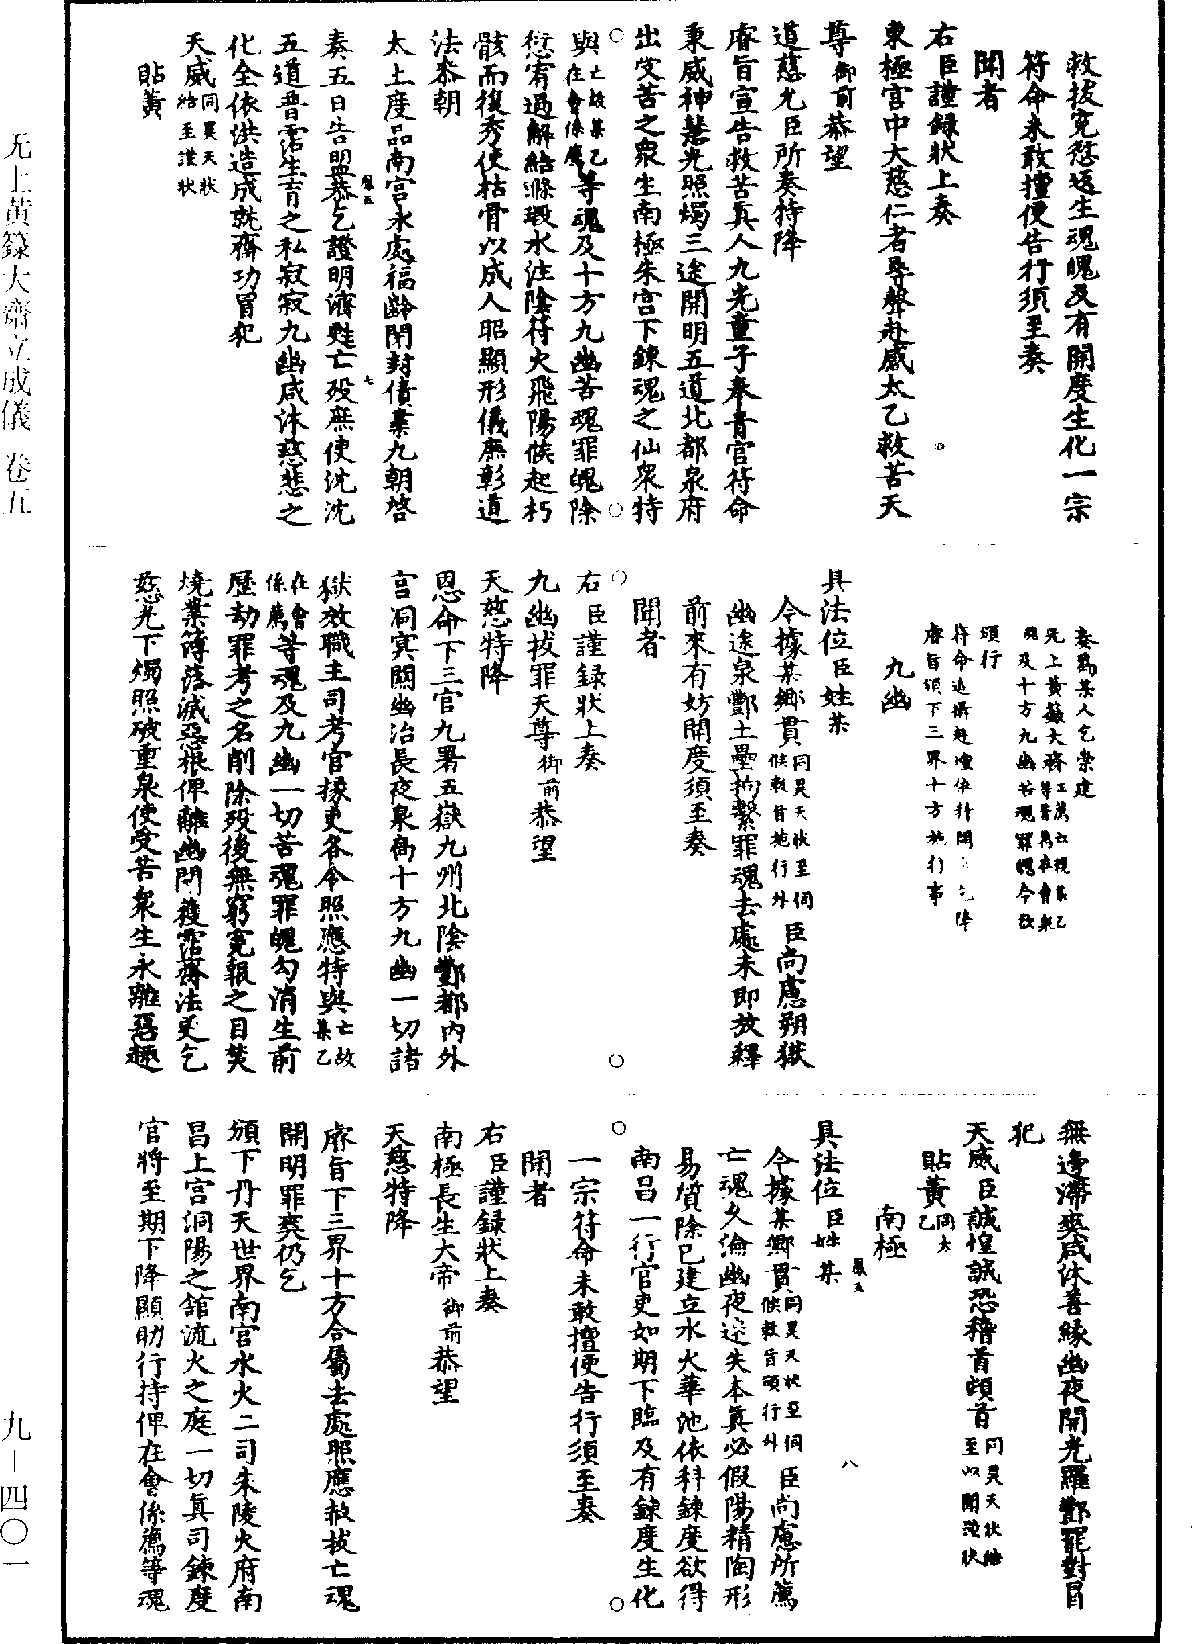 救拔冤愆返生魂魄及有開度生化一宗
符命未敢擅便告行須至奏
聞者
右臣謹錄狀上奏
東極宮中大慈仁者尋聲赴感太乙救苦天
尊御前恭望
道慈允臣所奏特降
睿旨宣告救苦真人九光童子奉青宮符命
秉威神慧光照燭三途開明五道北都泉府
出受苦之衆生南極朱宮下鍊魂之仙衆特
與亡故某乙在會係薦等魂及十方九幽苦魂罪魄除
愆宥過解結滌瑕水注陰符火飛陽候起朽
骸而復秀使枯骨以成人昭顯形儀無彰道
法恭朝
太上度品南宮永處福齡閉封債業九朝啓
奏五日告盟恭乞證明濟甦亡歿庶使沈沈
五道普霑生育之私寂寂九幽咸沐慈悲之
化全依洪造成就齋功冒犯
天威同昊天狀結至謹狀
貼黃
奏爲某人乞崇建
无上黃籙大齋工薦亡親某乙等普爲在會眾魂及十方九幽苦魂罪魄今欲
頒行
符命追攝赴壇依科開
睿旨頒下三界十方施行事
九幽
具法位臣姓某
今據某鄉貫同昊天狀至伺候敕旨施行外臣尚慮朔獄
幽途泉酆土壘拘繫罪魂去處未即放釋
前來有妨開度須至奏
聞者
右臣謹錄狀上奏
九幽拔罪天尊御前恭望
天慈特降
恩命下三官九署五嶽九州北陰酆都內外
宮洞冥關幽治長夜泉扃十方九幽一切諸
獄效職主司考官掾吏各令照應特與亡故某乙
在會係薦等魂及九幽一切苦魂罪魄勾消生前
歷劫罪考之名削除歿後無窮冤報之目焚
燒業簿落滅惡根俾離幽關獲霑齋法更乞
慈光下燭照破重泉使受苦衆生永離惡趣
無邊滯爽咸沐善緣幽夜開光羅酆罷對冒
犯
天威臣誠惶誠恐稽首頓首同昊天狀結至以聞謹狀
貼黃同太乙
南極
具法位臣姓某
今據某鄉貫同昊天狀至伺候敕旨頒行外臣尚慮所薦
亡魂久淪幽夜迷失本真必假陽精陶形
易質除已建立水火華池依科鍊度欲得
南昌一行官吏如期下臨及有鍊度生化
一宗符命未敢擅便告行須至奏
聞者
右臣謹錄狀上奏
南極長生大帝御前恭望
天慈特降
睿旨下三界十方合屬去處照應救拔亡魂
開明罪爽仍乞
頒下丹天世界南宮水火二司朱陵火府南
昌上宮洞陽之館流火之庭一切真司鍊度
官將至期下降顯助行持俾在會係薦等魂
无上黃籙大齋立成儀 卷五
九—四〇一